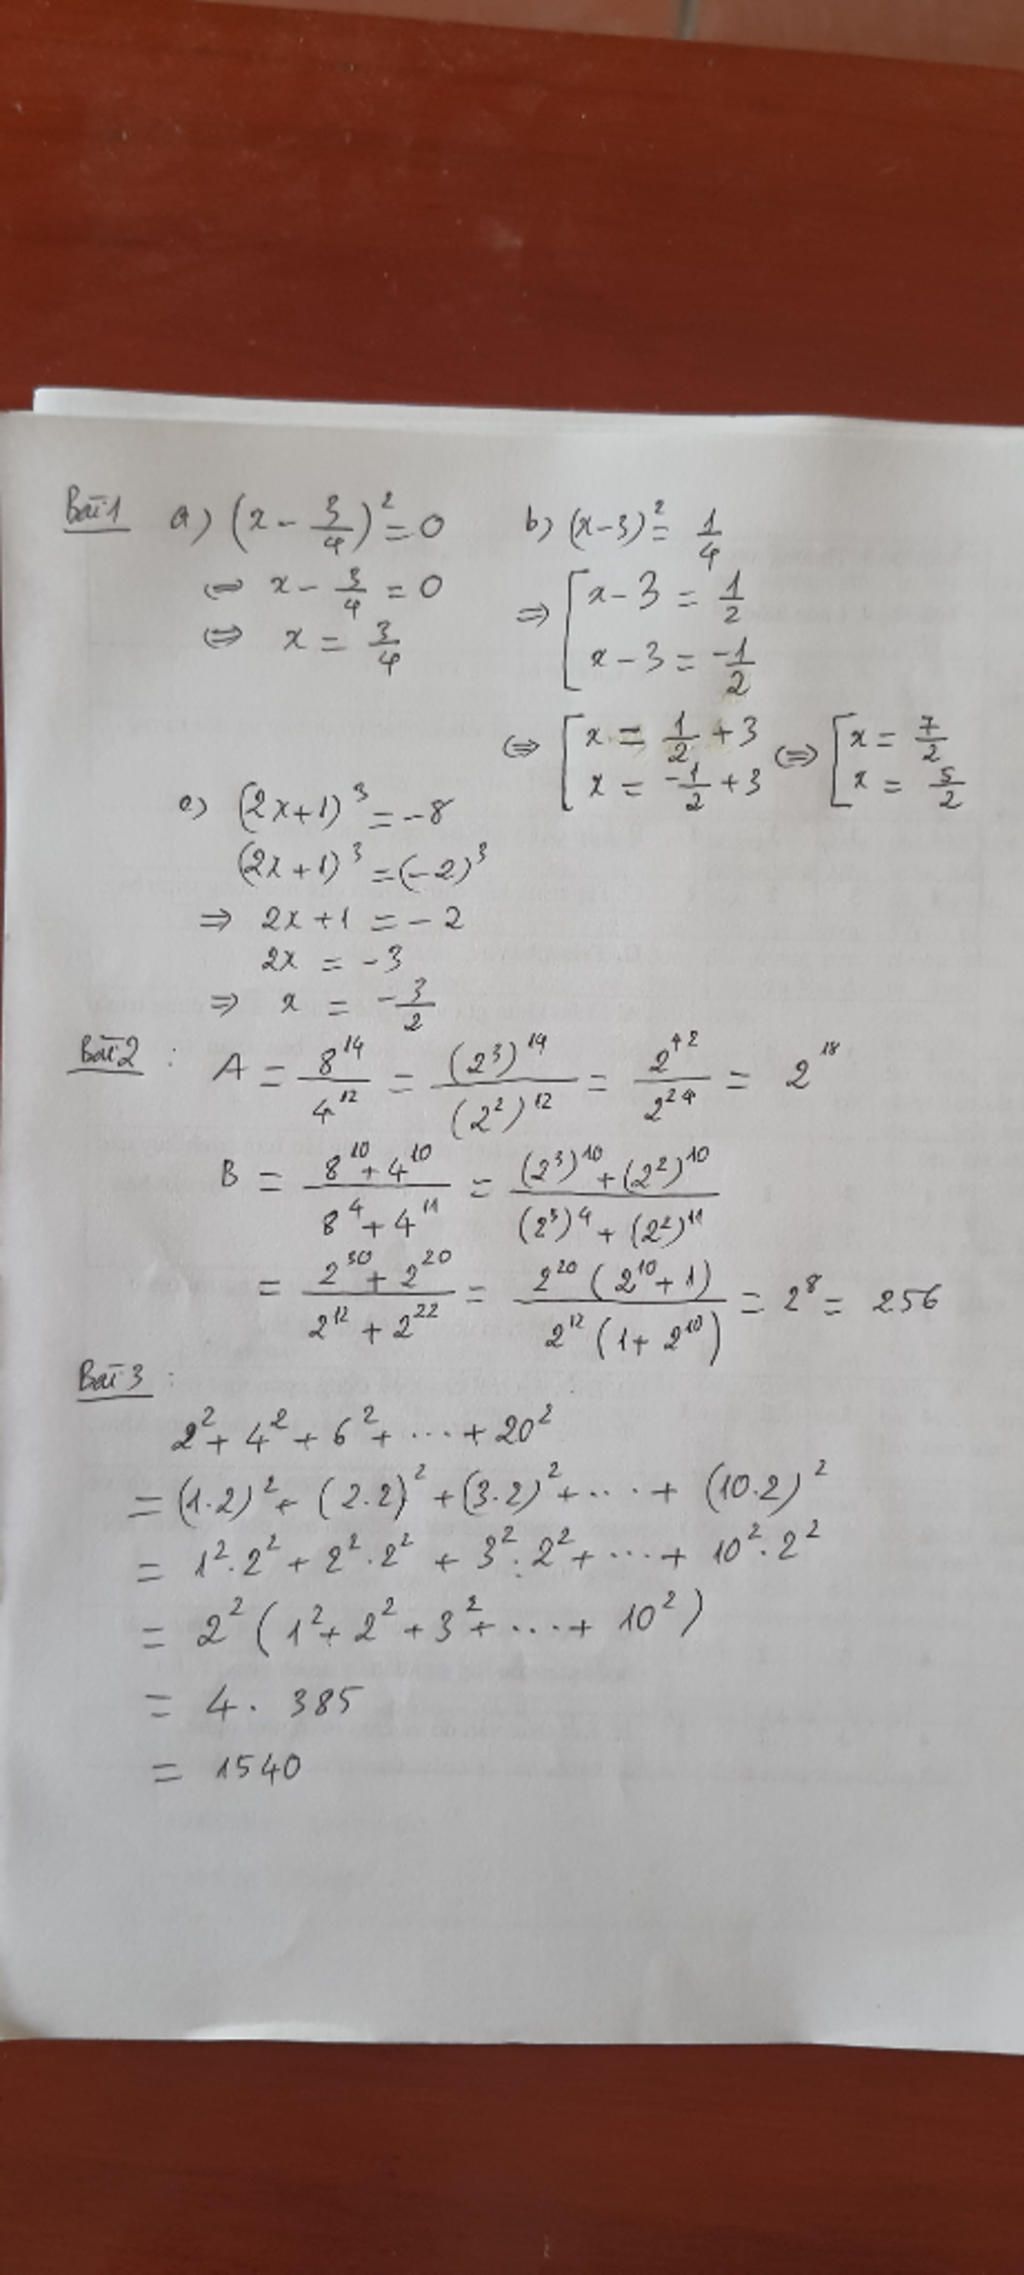 Bài 1 a) (x - 3/4)² = 0
⇔ x - 3/4 = 0
⇔ x = 3/4
b) (x-3)² = 1/4
⇒ [ x - 3 = 1/2
x - 3 = -1/2
⇔ [ x = 1/2 + 3 ⇔ [ x = 7/2
x = -1/2 + 3 x = 5/2
c) (2x+1)³ = -8
(2x+1)³ = (-2)³
⇒ 2x+1 = -2
2x = -3
⇒ x = -3/2
Bài 2 : A = 8¹⁴/4¹² = (2³)¹⁴/(2²)¹² = 2⁴²/2²⁴ = 2¹⁸
B = (8¹⁰ + 4¹⁰)/(8⁴ + 4¹¹) = ((2³)¹⁰ + (2²)¹⁰)/((2³)⁴ + (2²)¹¹)
= (2³⁰ + 2²⁰)/(2¹² + 2²²) = 2²⁰(2¹⁰ + 1)/2¹²(1 + 2¹⁰) = 2⁸ = 256
Bài 3 :
2² + 4² + 6² + ... + 20²
= (1.2)² + (2.2)² + (3.2)² + ... + (10.2)²
= 1².2² + 2².2² + 3².2² + ... + 10².2²
= 2² (1² + 2² + 3² + ... + 10²)
= 4 . 385
= 1540